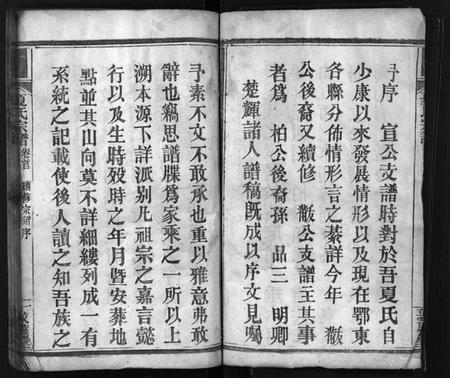 予序　宣公支譜時對於吾夏氏自
少康以來發展情形以及現在鄂東
各縣分佈情形言之綦詳今年　黻
公後裔又續修　黻公支譜主其事
者爲　柏公後裔孫　品三　明卿
楚輝諸人譜稿旣成以序文見囑
予素不文不敢承也重以雅意弗敢
辭也竊思譜牒爲家乘之一所以上
溯本源下詳派别凡祖宗之嘉言懿
行以及生時歿時之年月暨安葬地
點並其山向莫不詳細縷列成一有
系統之記載使後人讀之知吾族之
夏氏宗譜 卷首 續修宗譜序 一